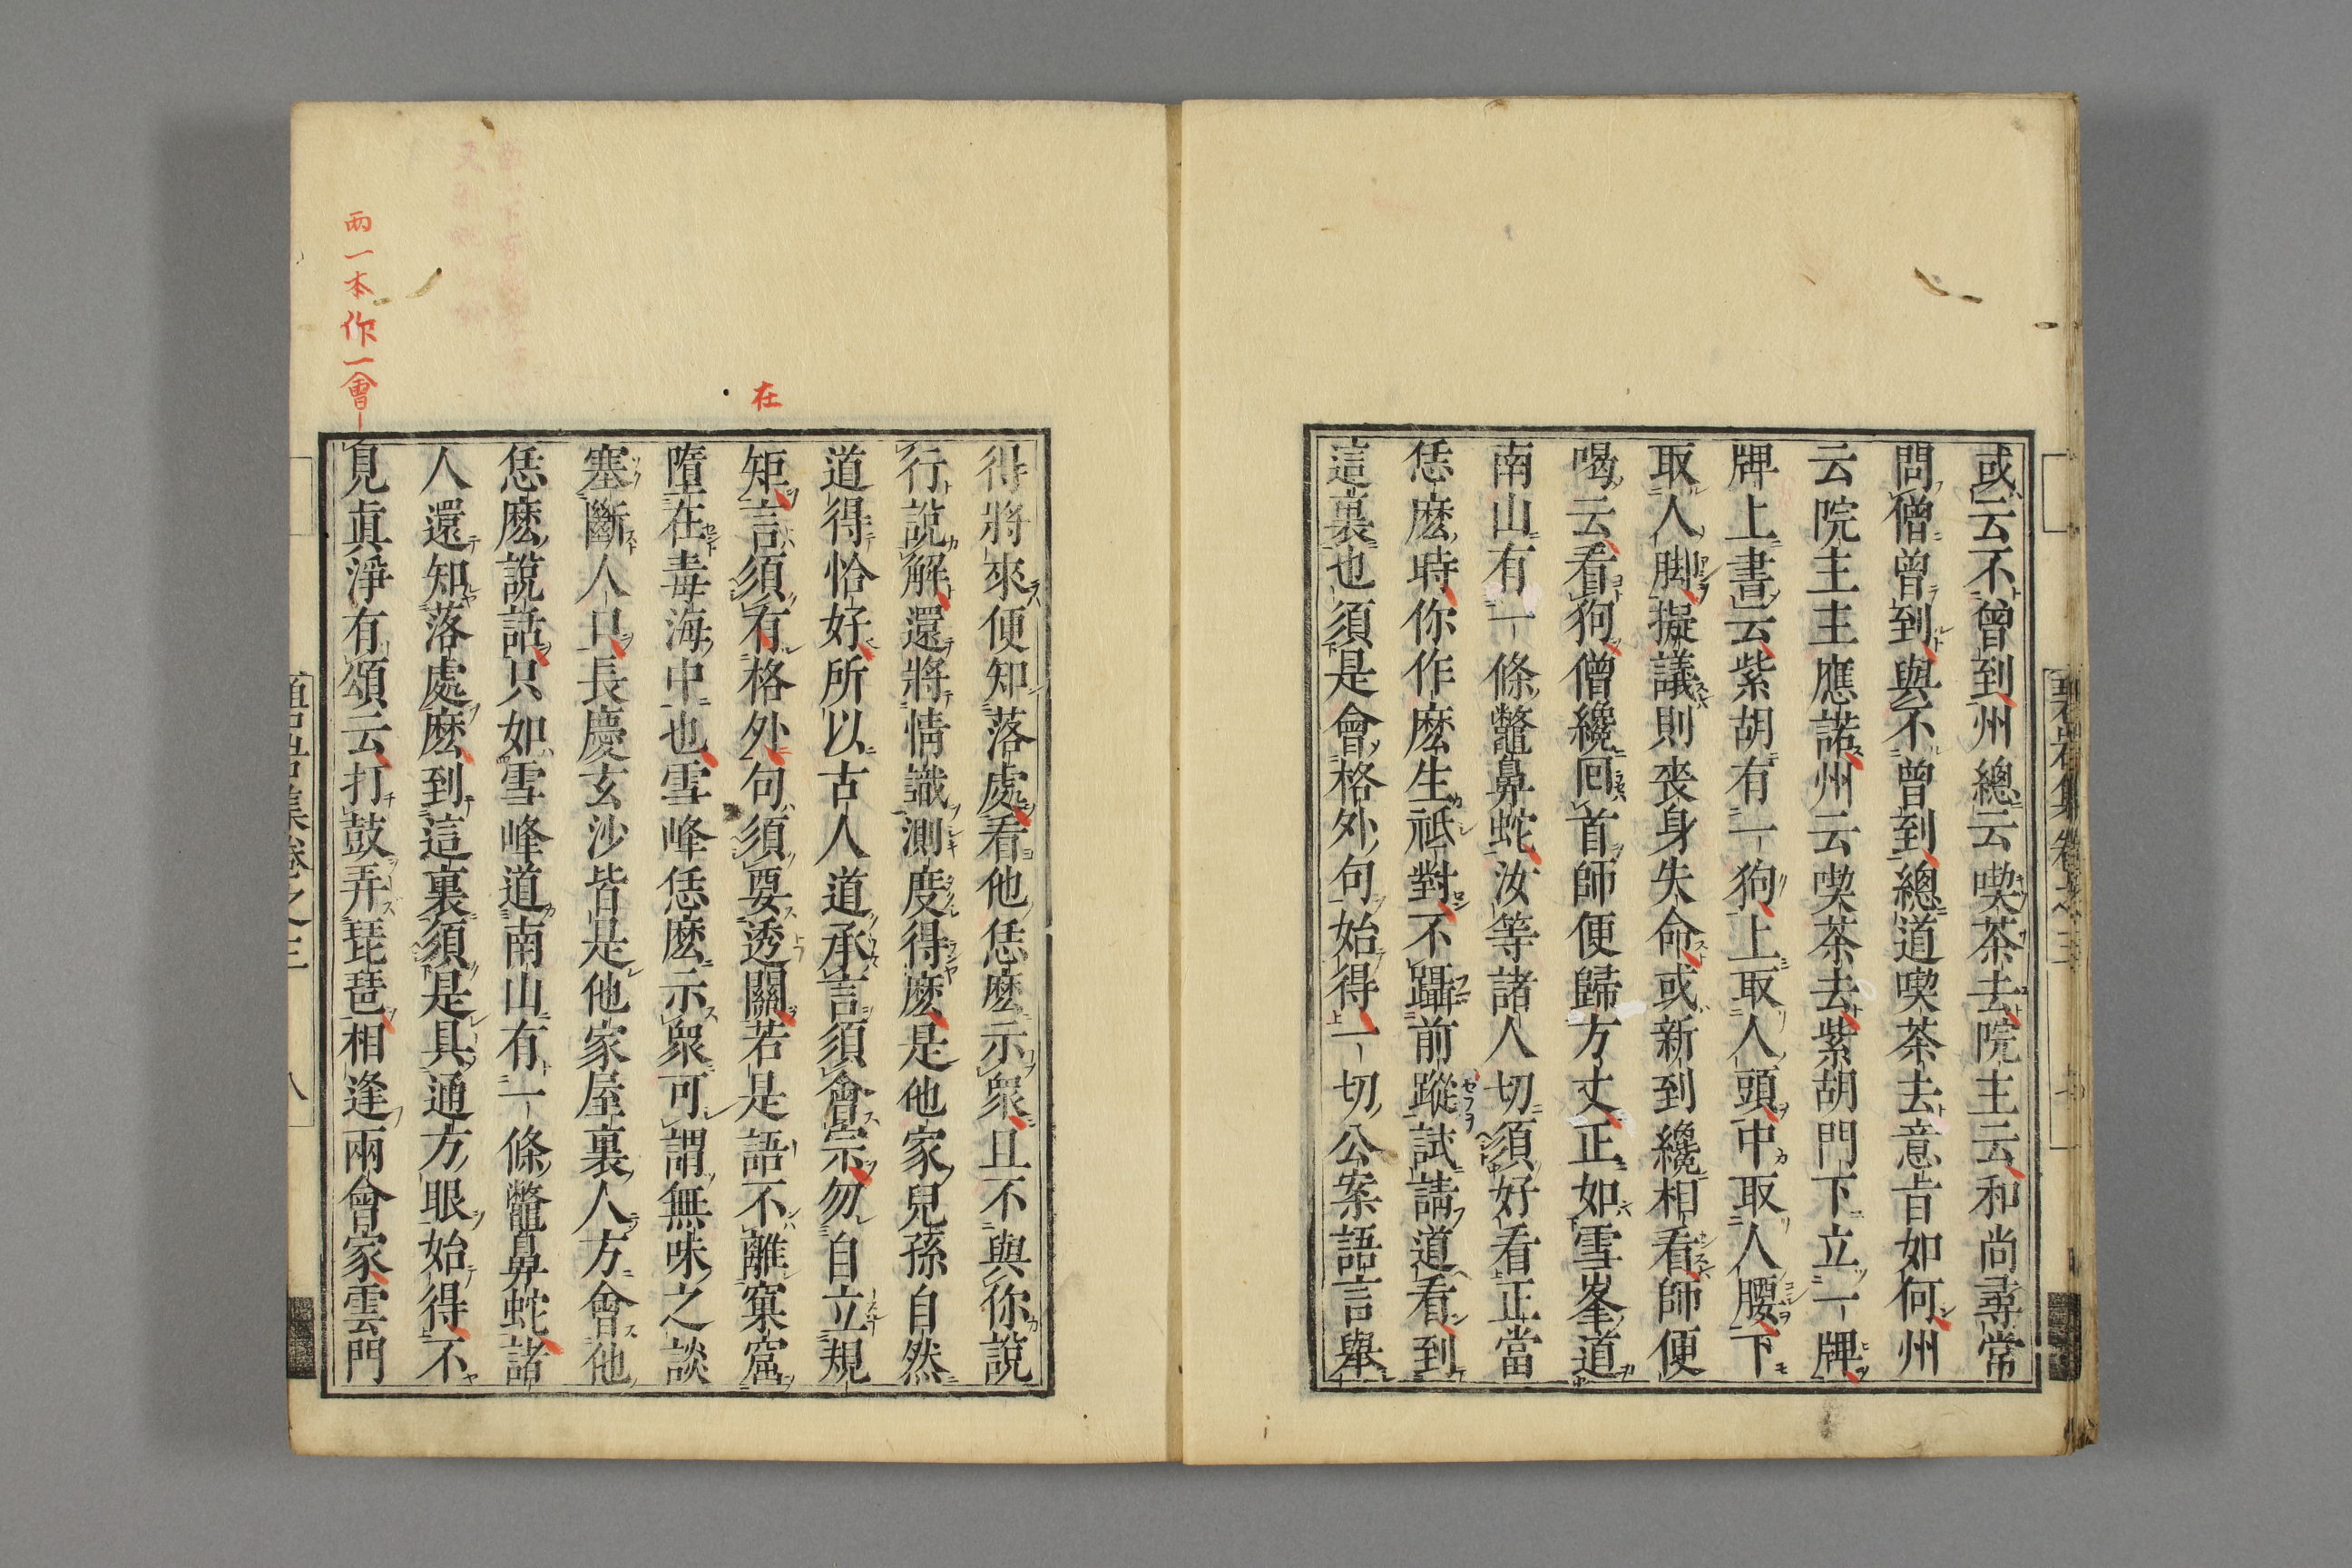 或云不曾到州總云喫茶去院主云和尚尋常
問僧曾到與不曾到總道喫茶去意旨如何州
云院主主應諾州云喫茶去紫胡門下立一牌
牌上書云紫胡有一狗上取人頭中取人腰下
取人脚擬議則喪身失命或新到纔相看師便
喝云看狗僧纔回首師便歸方丈正如雪峯道
南山有一條鼈鼻蛇汝等諸人切須好看正當
恁麽時你作麽生祗對不躡前蹤試請道看到
這裏也須是會格外句始得一切公案語言舉
得將來便知落處看他恁麽示衆且不與你說
行說解還將情識測度得麽是他家兒孫自然
道得恰好所以古人道承言須會宗勿自立規
在
矩言須有格外句須要透關若是語不離窠窟
墮在毒海中也雪峰恁麽示衆可謂無味之談
塞斷人口長慶玄沙皆是他家屋裏人方會他
恁麽說話只如雪峰道南山有一條鼈鼻蛇諸
人還知落處麽到這裏須是具通方眼始得不
兩一本作一會
見眞淨有頌云打鼓弄琵琶相逢兩會家雲門